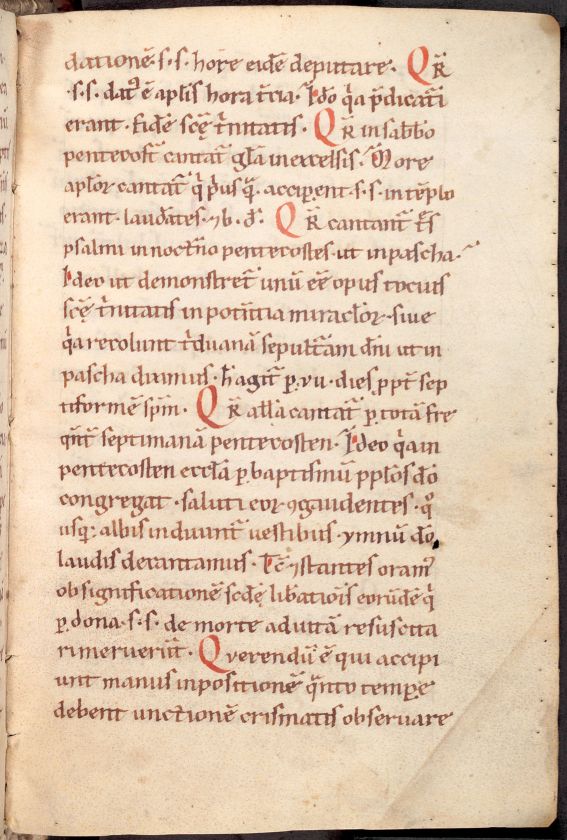 dationē · s · s · hore eidē deputare · Qr̄
· s · s · dat᷒ ē aplīs hora t͛cia · Ido q̄a p̄dicatī
erant · fidē scē t͛nitatis · Qr̄ in sabbo
pentecosī cantat̄ gla in excelsis · More
aplor cantat̄ q̄ p͛usq̄ · accip̄ent · s · s · in tēplo
erant · laudātes · ⁊ b · d̄ · Qr̄ cantant̄
psalmi in noct͛no pentecostes · ut in pascha ·
Ideo ut demonstret̄ unū eē opus tocius
scē t͛nitatis in potītia miraclor · siue
q̄a recolunt t͛duanā sepultā dn̄i ut in
pascha diximus · h̄ agit̄ p̱ · vii · dies p̱pt̄ sep
tiformē spm̄ · Qr̄ allā cantat̄ p̱ totā fre
septimanā pentecosten · Ideo q̄a in
pentecosten eccl̄a p̱ baptismū pplōs dō
congregat · saluti eor ꝯgaudentes · qͦ
usq; albis induant̄ uestibus · ymnū dō
laudis decantamus · ⁊ stantes oram᷒
ob significationē scdę lib̄atiōis eorūdē q̄
p̱ dona · s · s · de morte ad uitā resuscita
ri meruer̄t · Querendū ē qui accipi
unt manus inpositionē q̄nto temp̱e
debent unctionē crismatis obseruare